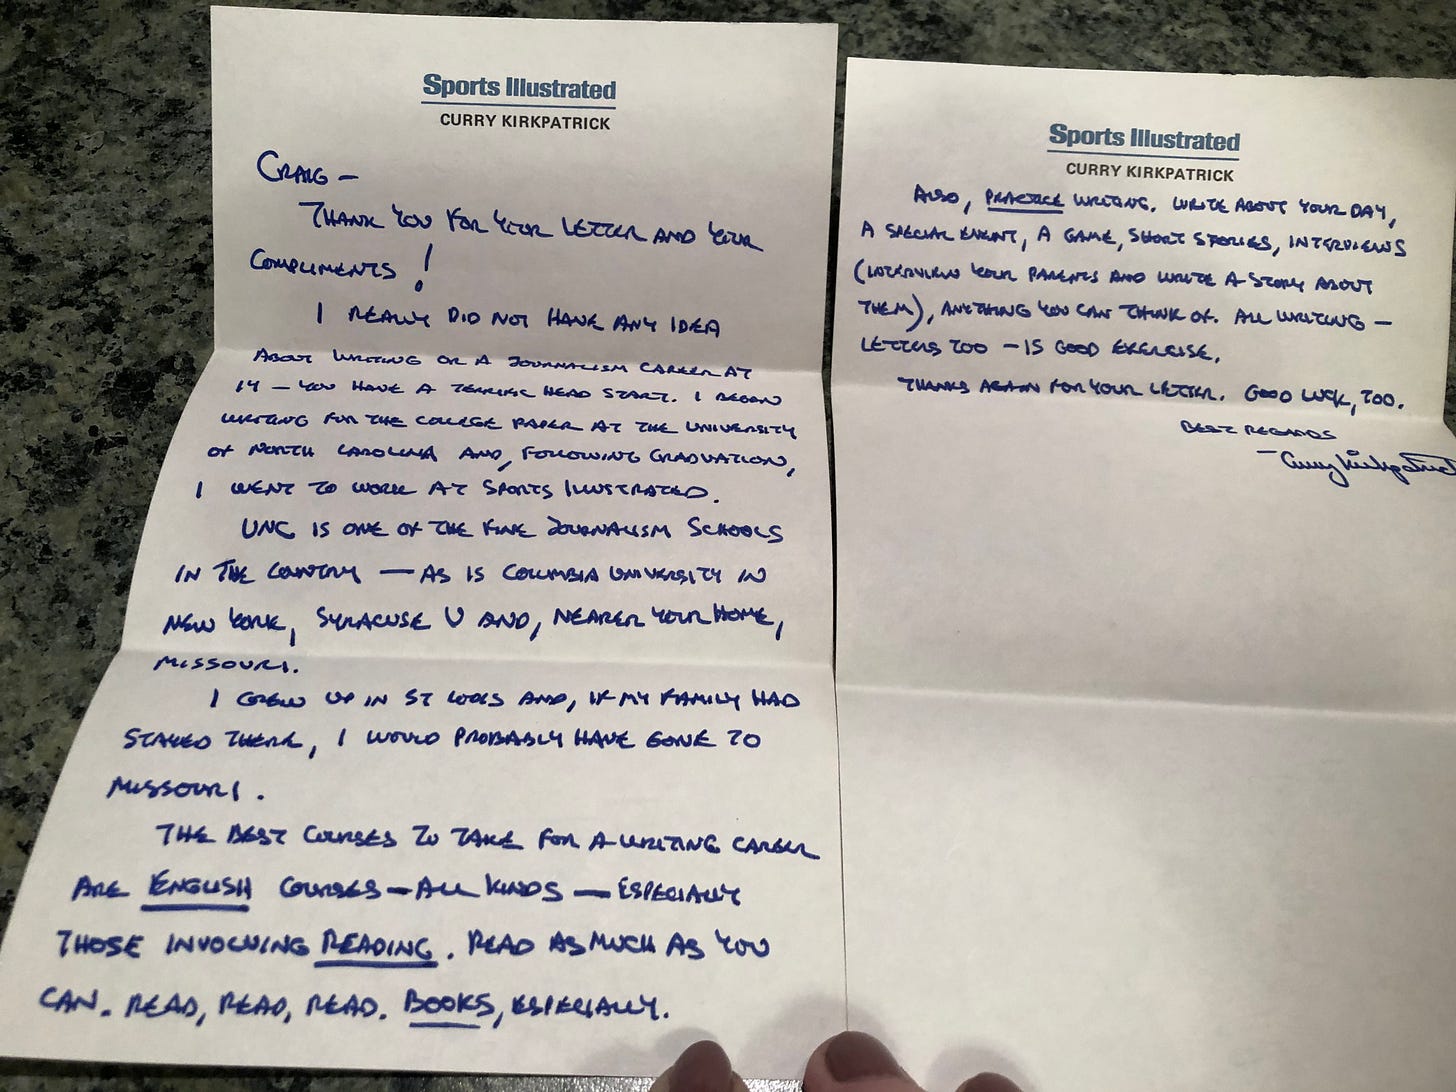 Sports Illustrated
CURRY KIRKPATRICK
CRAIG —
THANK YOU FOR YOUR LETTER AND YOUR
COMPLIMENTS!
I REALLY DID NOT HAVE ANY IDEA
ABOUT WRITING OR A JOURNALISM CAREER AT
14 — YOU HAVE A TERRIFIC HEAD START. I BEGAN
WRITING FOR THE COLLEGE PAPER AT THE UNIVERSITY
OF NORTH CAROLINA AND, FOLLOWING GRADUATION,
I WENT TO WORK AT SPORTS ILLUSTRATED.
UNC IS ONE OF THE FINE JOURNALISM SCHOOLS
IN THE COUNTRY — AS IS COLUMBIA UNIVERSITY IN
NEW YORK, SYRACUSE U AND, NEARER YOUR HOME,
MISSOURI.
I GREW UP IN ST LOUIS AND, IF MY FAMILY HAD
STAYED THERE, I WOULD PROBABLY HAVE GONE TO
MISSOURI.
THE BEST COURSES TO TAKE FOR A WRITING CAREER
ARE ENGLISH COURSES — ALL KINDS — ESPECIALLY
THOSE INVOLVING READING. READ AS MUCH AS YOU
CAN. READ, READ, READ. BOOKS, ESPECIALLY.
Sports Illustrated
CURRY KIRKPATRICK
ALSO, PRACTICE WRITING. WRITE ABOUT YOUR DAY,
A SPECIAL EVENT, A GAME, SHORT STORIES, INTERVIEWS
(INTERVIEW YOUR PARENTS AND WRITE A STORY ABOUT
THEM), ANYTHING YOU CAN THINK OF. ALL WRITING —
LETTERS TOO — IS GOOD EXERCISE.
THANKS AGAIN FOR YOUR LETTER. GOOD LUCK, TOO.
BEST REGARDS
— Curry Kirkpatrick